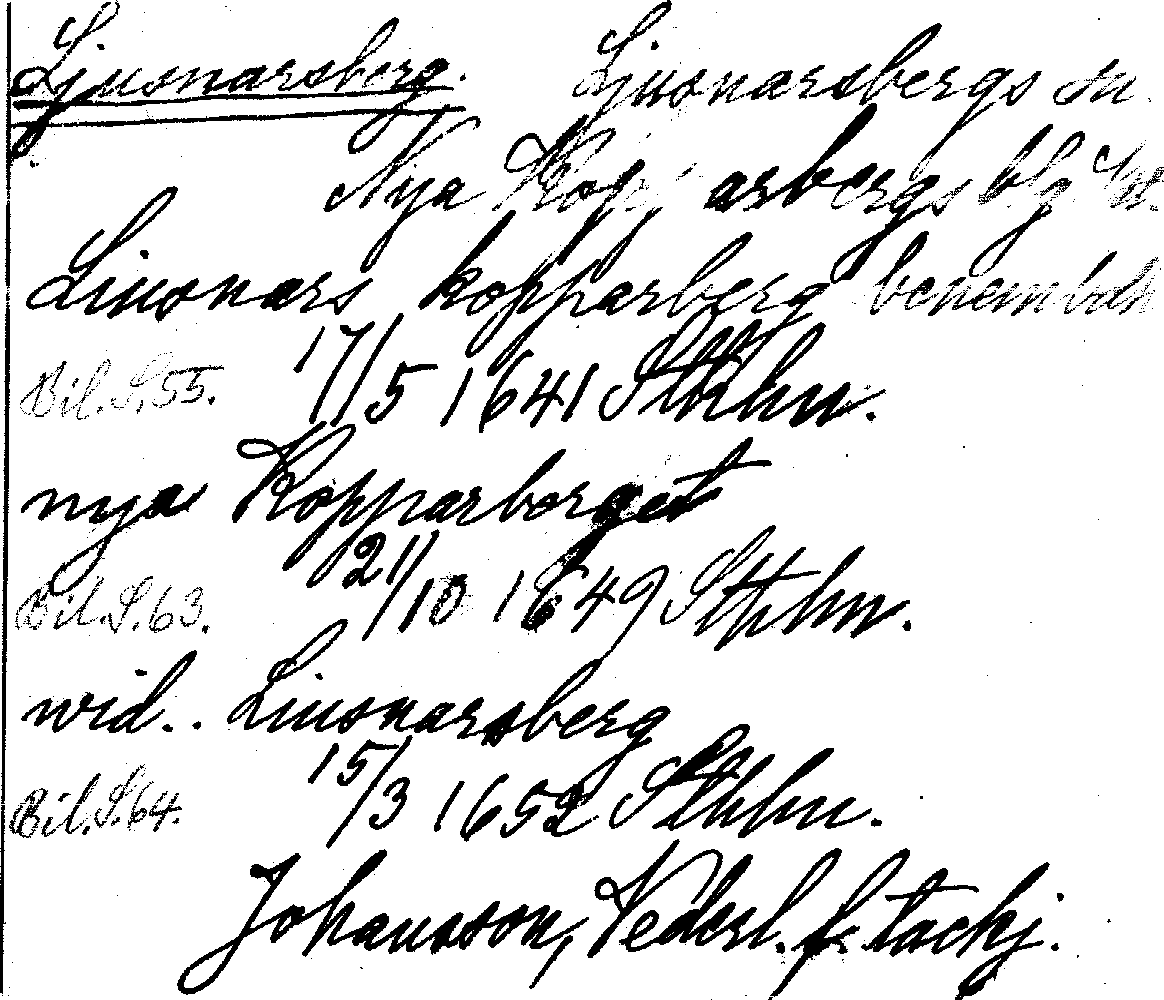 Ljusnarsberg. Ljusnarsbergs sn.
Nya Kopparbergs blg
Liusnars kopparberg benembdh
Bil. S. 55. 17/5 1641 Sthhn.
nya Kopparberget
Bil. S. 63. 21/10 1649 Sthhn.
wid.. Liusnarsberg
Bil. S. 64. 15/3 1652 Sthhn.
Johansson, Vederl. f. tackj.